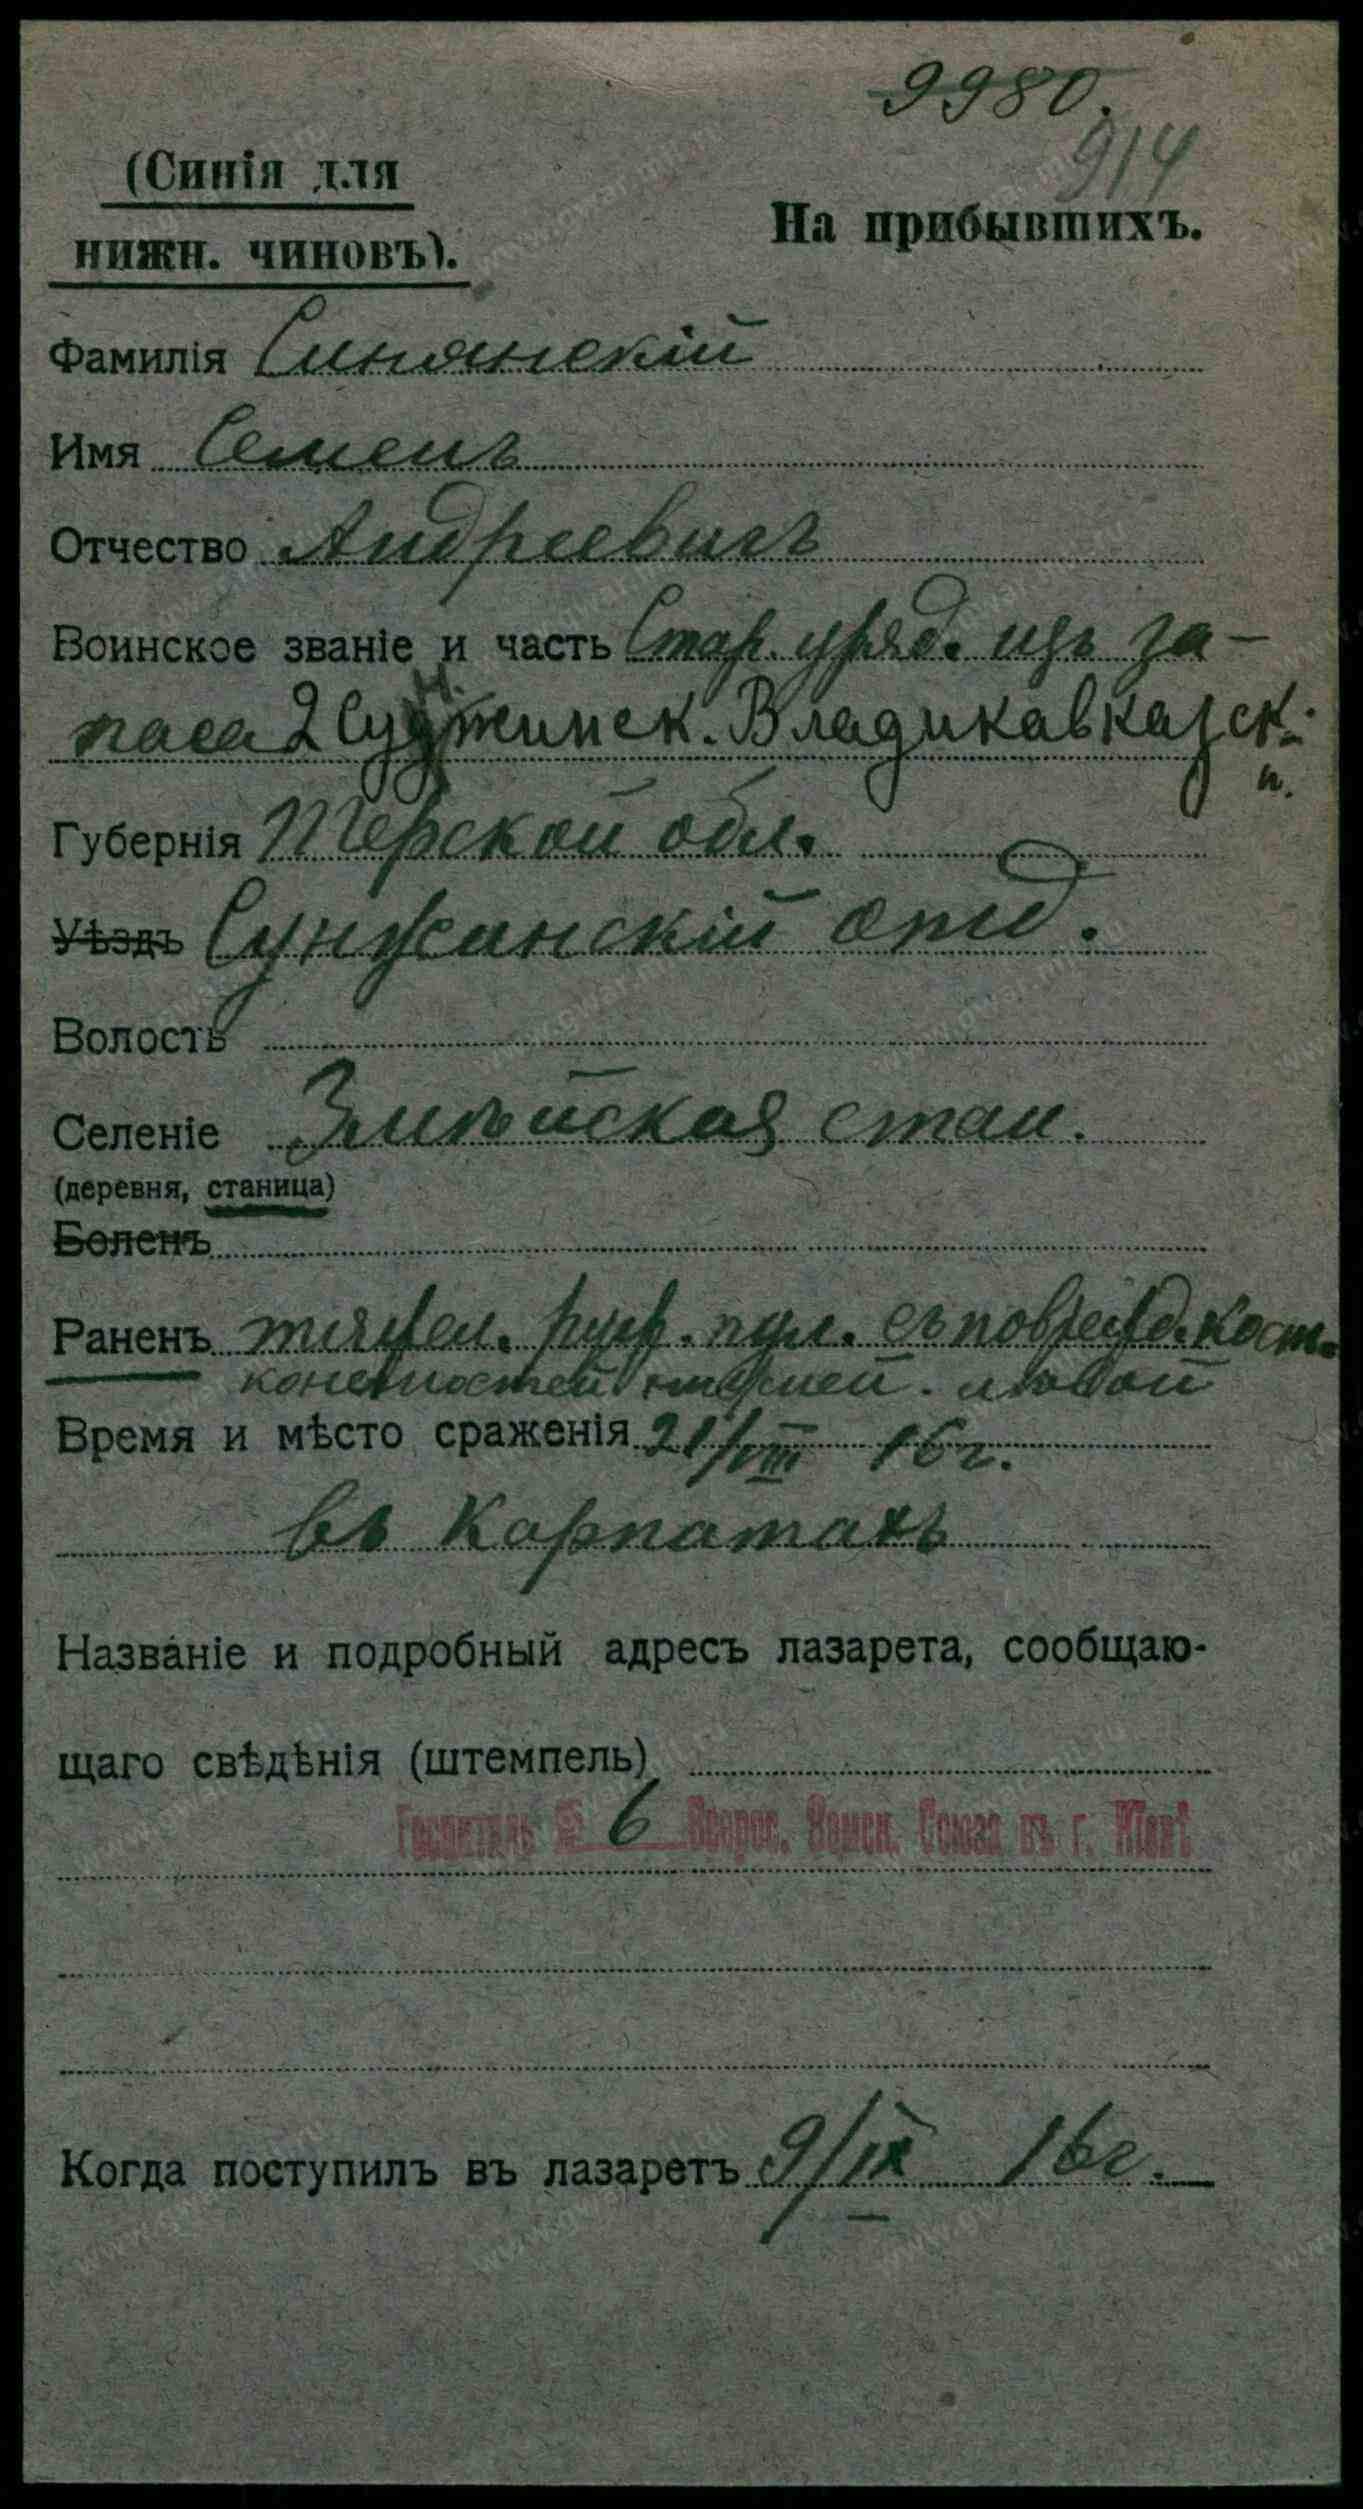 9980.
914
(Синія для
нижн. чиновъ).
На прибывшихъ.
Фамилія Синянскій
Имя Семенъ
Отчество Андреевичъ
Воинское званіе и часть Стар. уряд. изъ за-
паса 2 Сунджинск. Владикавказск.
п.
Губернія Терской обл.
Уѣздъ Сунженскій отд.
Волость
Селеніе Змѣйская стан.
(деревня, станица)
Боленъ
Раненъ тяжел. руж. пул. съ поврежд. кост.
конечностей левой
Время и мѣсто сраженія 21/VIII 16 г.
въ Карпатахъ
Названіе и подробный адресъ лазарета, сообщаю-
щаго свѣдѣнія (штемпель)
Госпиталь № 6 Всерос. Земск. Союза въ г. Кіевѣ
Когда поступилъ въ лазаретъ 9/IX 16 г.